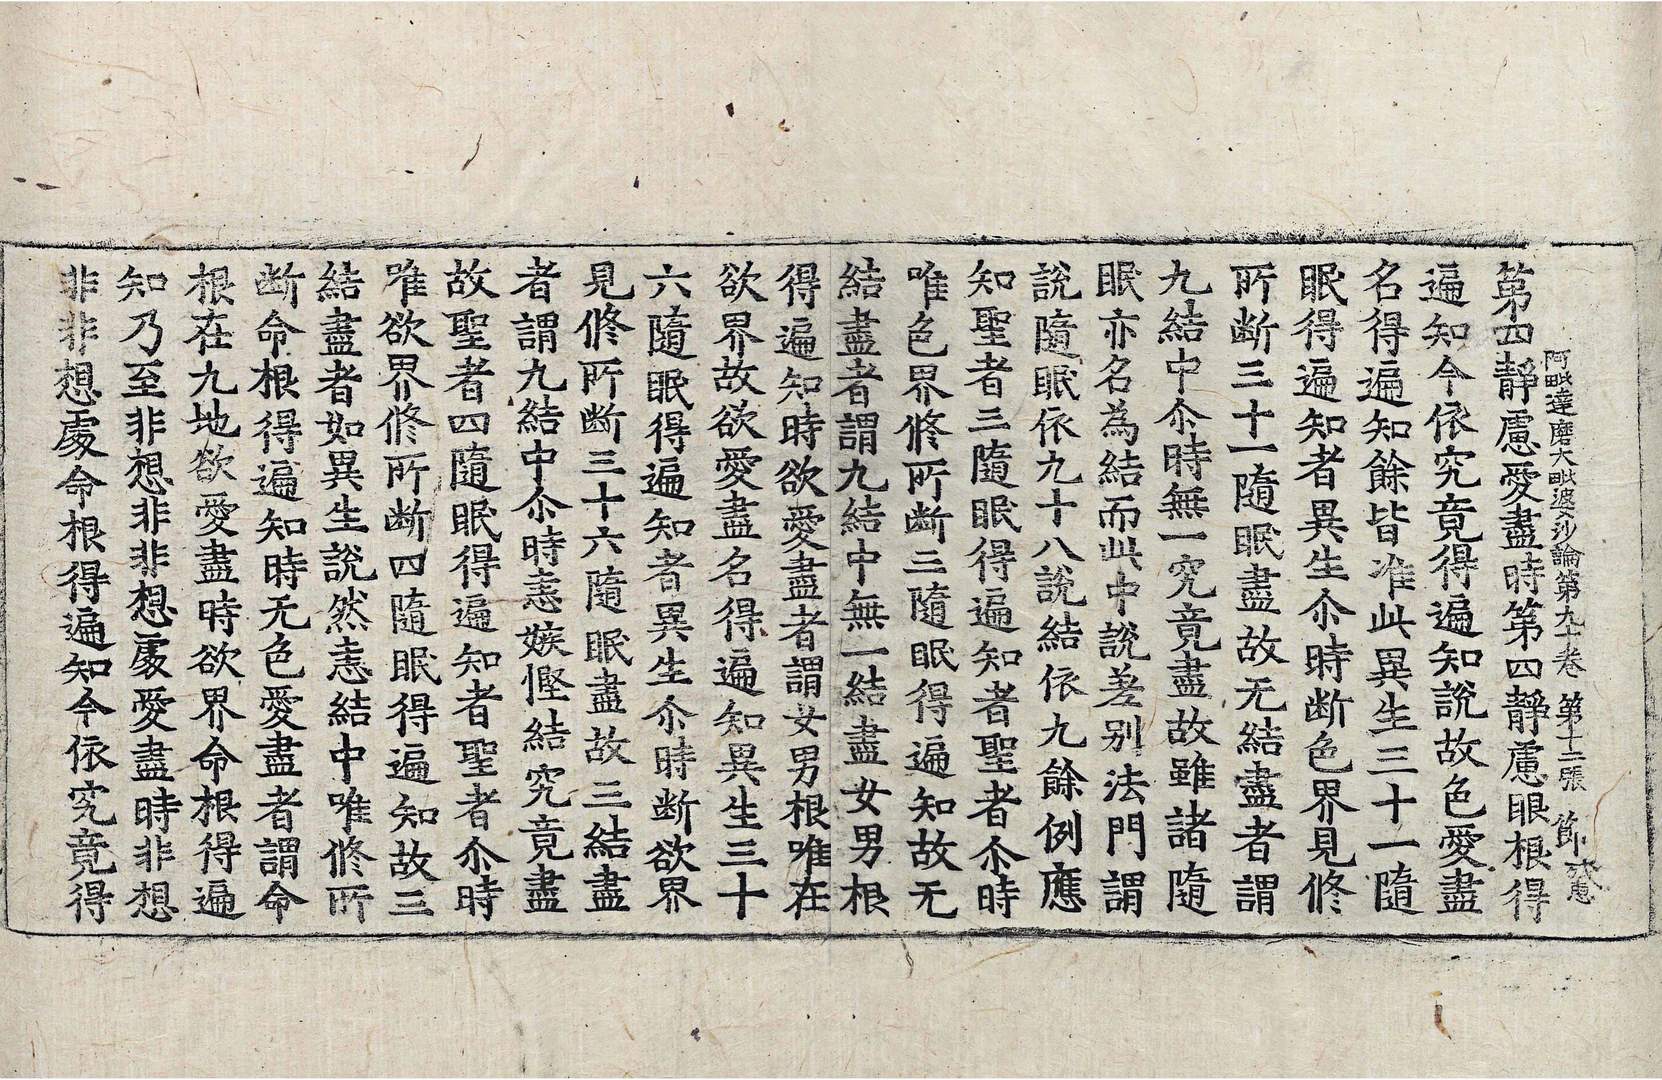 阿毗達磨大毗婆沙論第九十卷 第十二張 節
第四靜慮愛盡時第四靜慮眼根得
遍知今依究竟得遍知說故色愛盡
名得遍知餘皆准此異生三十一隨
眠得遍知者異生尒時断色界見修
所断三十一隨眠盡故无結盡者謂
九結中尒時無一究竟盡故雖諸隨
眠亦名為結而此中說差別法門謂
說隨眠依九十八說結依九餘例應
知聖者三隨眠得遍知者聖者尒時
唯色界修所断三隨眠得遍知故无
結盡者謂九結中無一結盡女男根
得遍知時欲愛盡者謂女男根唯在
欲界故欲愛盡名得遍知異生三十
六隨眠得遍知者異生尒時断欲界
見修所断三十六隨眠盡故三結盡
者謂九結中尒時恚嫉慳結究竟盡
故聖者四隨眠得遍知者聖者尒時
唯欲界修所断四隨眠得遍知故三
結盡者如異生說然恚結中唯修所
断命根得遍知時无色愛盡者謂命
根在九地欲愛盡時欲界命根得遍
知乃至非想非非想處愛盡時非想
非非想處命根得遍知今依究竟得